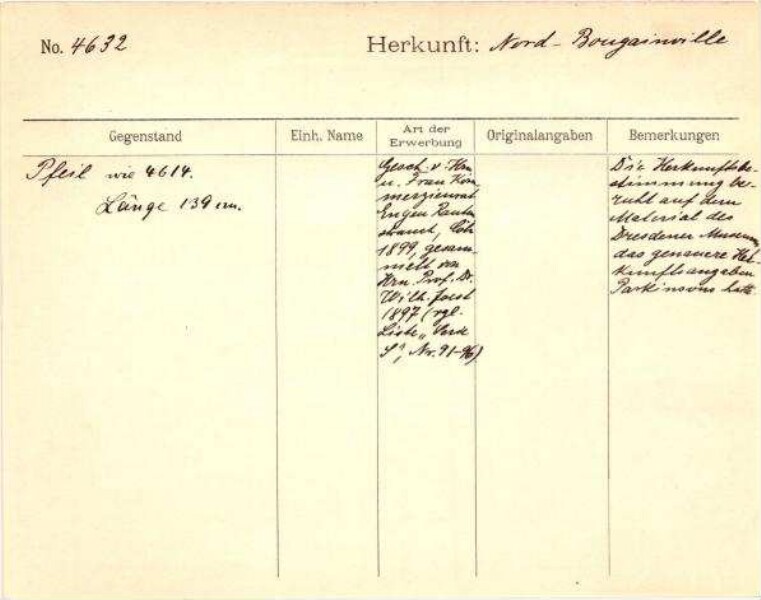 No. 4632
Herkunft: Nord-Bougainville
Gegenstand
Einh. Name
Art der
Erwerbung
Originalangaben
Bemerkungen
Pfeil wie 4614.
Länge 139 cm.
Gesch. v. Hrn
u. Frau Kom-
merzienrat
Eugen Rauten
strauch, Cöln
1899, gesam-
melt von
Hrn. Prof. Dr.
Wilh. Joest
1897 (vgl.
Liste „
S", Nr. 91-96)
Die Herkunftsbe-
stimmung be-
ruht auf dem
Material des
Dresdener Museums,
das genauere Her-
kunftsangaben
Parkinsons hatte.